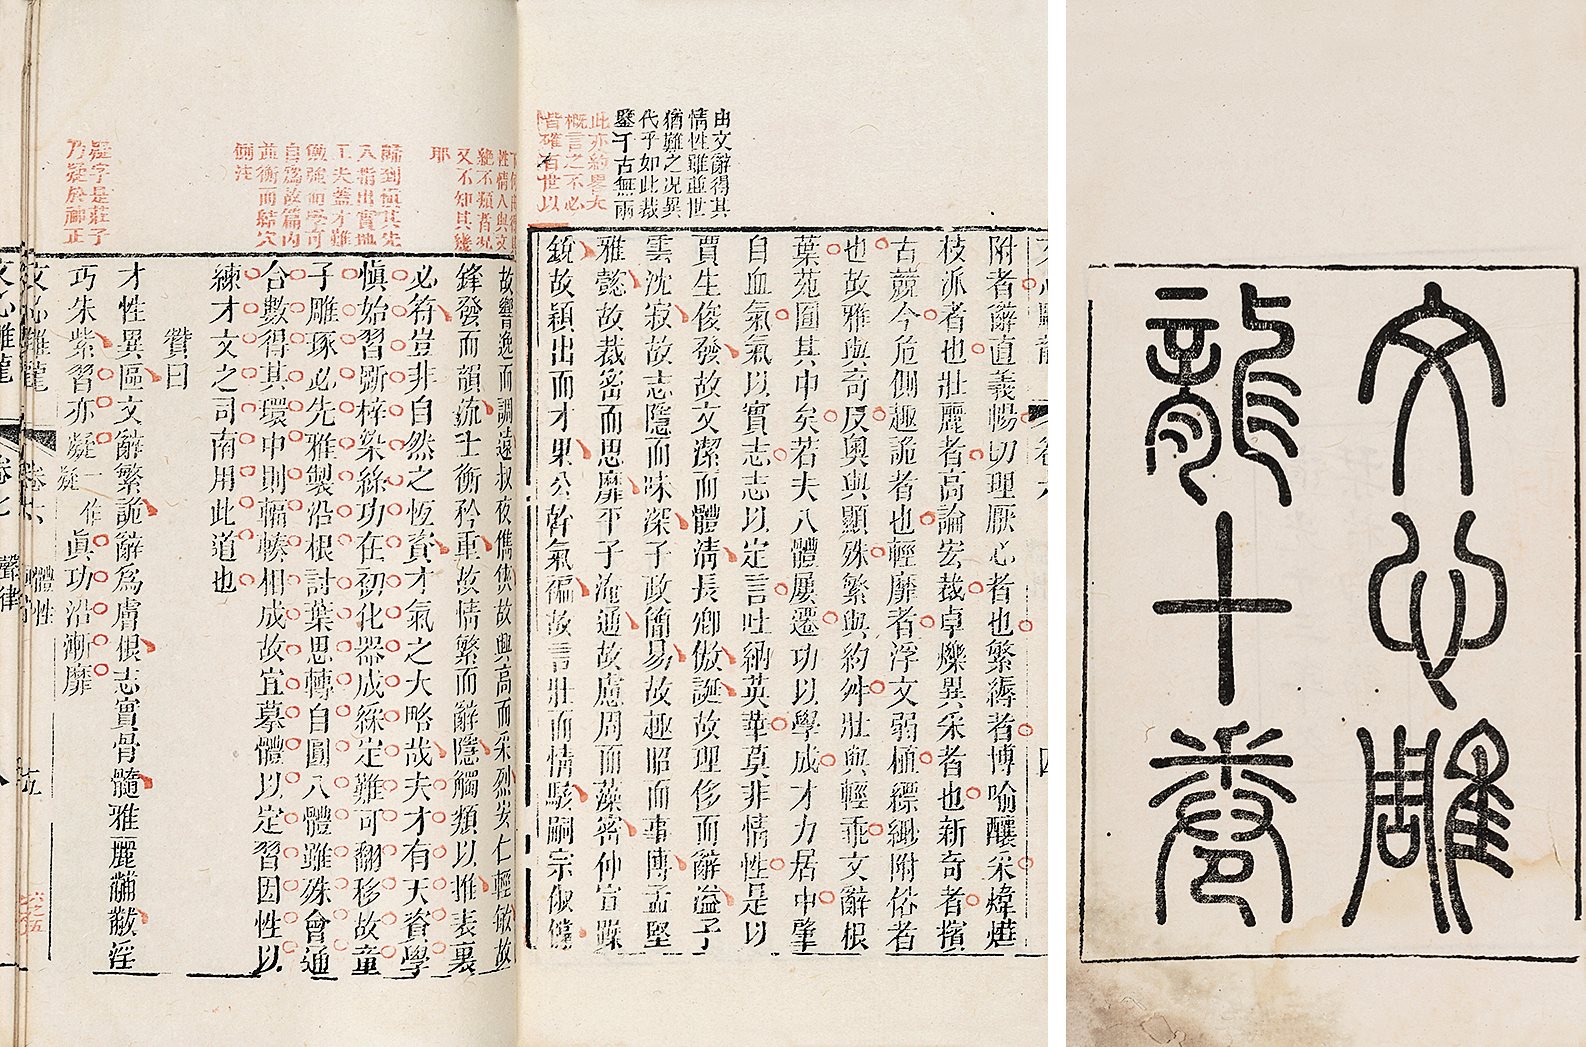 文心雕
龍十卷
由文辭得其
情性雖並世
猶難之况異
代乎如此裁
鑒千古無兩
此亦約畧大
概言之不必
皆確百世以
附者辭直義暢切理厭心者也繁縟者博喻釀采煒燁
枝派者也壯麗者高論宏裁卓爍異采者也新奇者擯
古競今危側趣詭者也輕靡者浮文弱植縹緲附俗者
也故雅與奇反奥與顯殊繁與約舛壯與輕乖文辭根
葉苑囿其中矣若夫八體屢遷功以學成才力居中肇
自血氣氣以實志志以定言吐納英華莫非情性是以
賈生俊發故文潔而體清長卿傲誕故理侈而辭溢子
雲沈寂故志隱而味深子政簡易故趣昭而事博孟堅
雅懿故裁密而思靡平子淹通故慮周而藻密仲宣躁
銳故穎出而才果公幹氣褊故言壯而情駭嗣宗俶儻
下何由得其
性情人與文
絕不類者况
又不知其幾
耶
歸到慎其先
入指出實地
工夫蓋才難
勉強而學可
自爲故篇内
並衡而結穴
側注
疑字是莊子
乃疑於神正
故響逸而調遠叔夜儁俠故興高而采烈安仁輕敏故
鋒發而韻流士衡矜重故情繁而辭隱觸類以推表裏
必符豈非自然之恆資才氣之大略哉夫才有天資學
慎始習斲梓染絲功在初化器成綵定難可翻移故童
子雕琢必先雅製沿根討葉思轉自圓八體雖殊會通
合數得其環中則輻輳相成故宜摹體以定習因性以
練才文之司南用此道也
贊曰
才性異區文辭繁詭辭爲膚根志實骨髓雅麗黼黻淫
巧朱紫習亦凝一作疑真功沿漸靡
文心雕龍 卷六 體性
文心雕龍 卷七 聲律